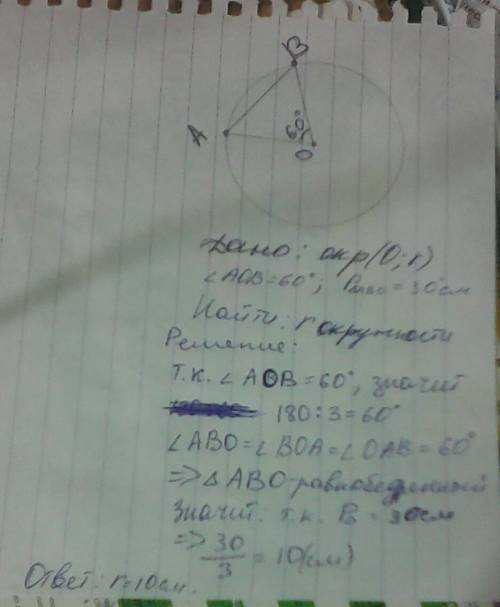 B
A
60°
O
Дано: окр(O;r)
∠AOB=60°; P =30см
Найти: r окружности
Решение:
т.к. ∠AOB=60°, значит
180:3=60°
∠ABO=∠BOA=∠OAB=60°
=> △ABO-равнобедренный
Значит: т.к. P = 30см
=> 30/3 = 10(см)
Ответ: r=10см.